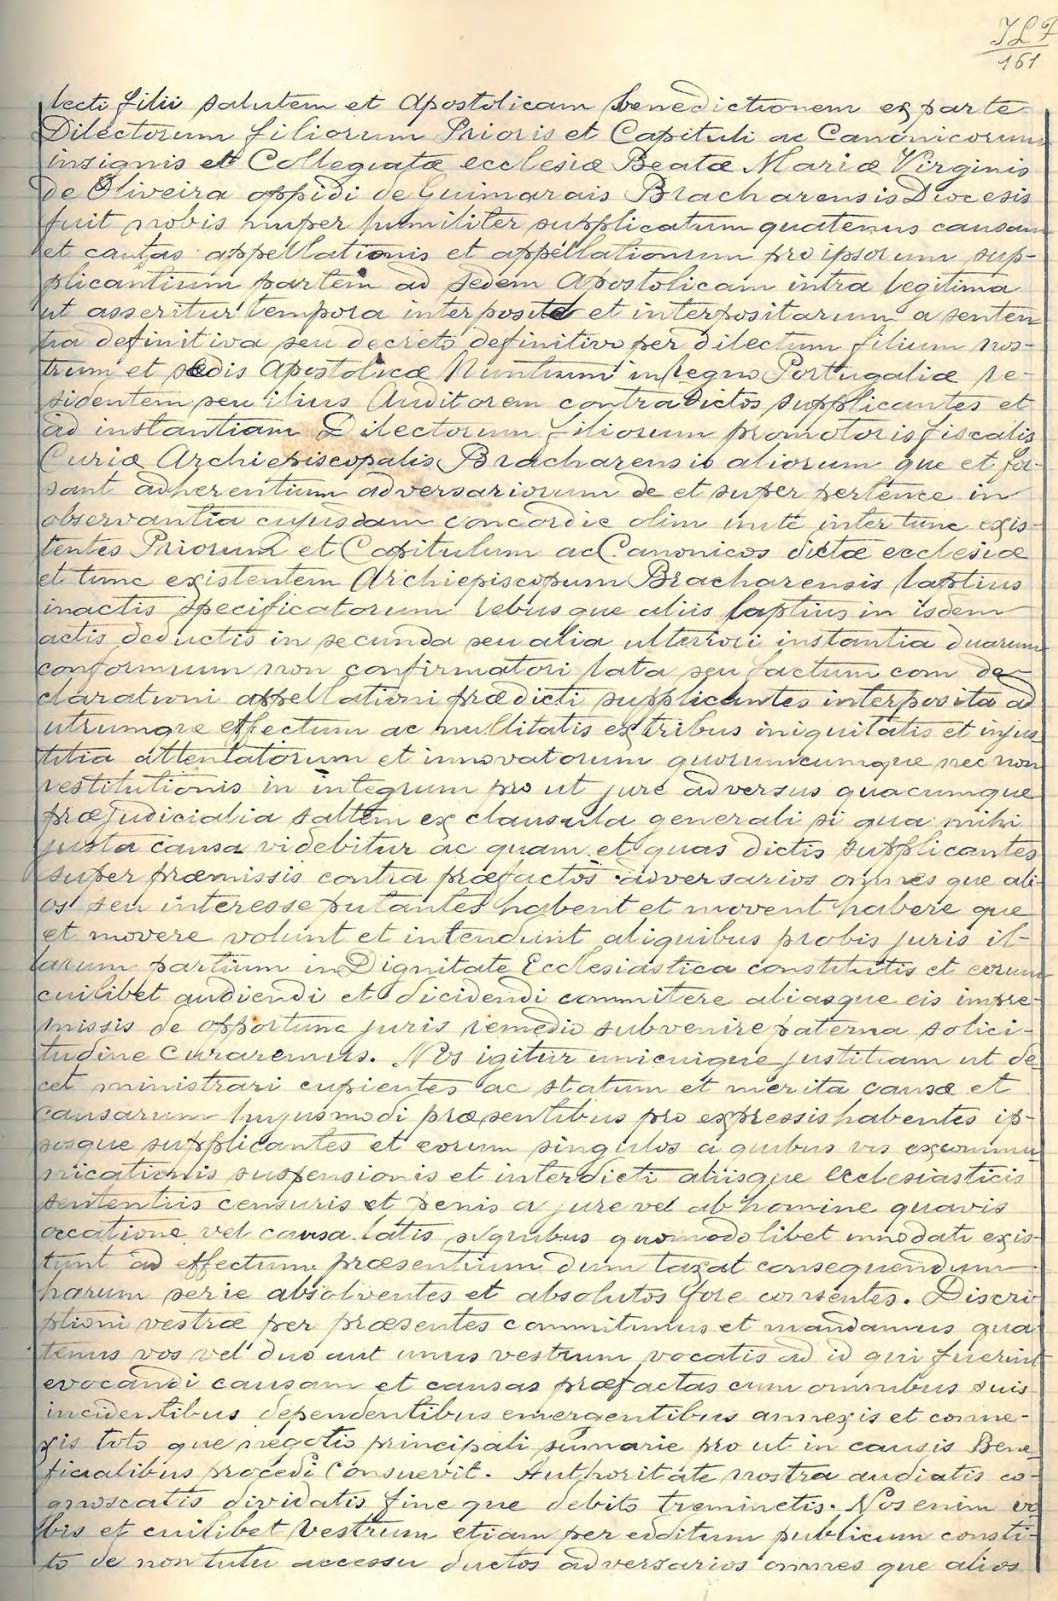 161
lecti filii salutem et Apostolicam benedictionem ex parte
Dilectorum filiorum Prioris et Capituli ac Canonicorum
insignis et Collegiatæ ecclesiæ Beatæ Mariæ Virginis
de Oliveira oppidi de Guimarais Bracharensis Diocesis
fuit nobis nuper humiliter supplicatum quatenus causam
et cautas appellationis et appellationum pro ipsorum sup-
plicantium partem ad sedem Apostolicam intra legitima
ut asseritur tempora interposite et interpositarum a senten
tia definitiva seu decreto definitivo per dilectum filium nos-
trum et sedis Apostolicæ Nuntium in regno Portugaliæ re-
sidentem seu illius Auditorem contra dictos supplicantes et
ad instantiam Dilectorum filiorum promotoris fiscalis
Curiæ Archiepiscopalis Bracharensis aliorum que et fa-
sant adherentium adversariorum de et super pertence in
observantia cujusdam concordie olim inite inter tunc exis-
tentes Priorum et Capitulum ac Canonicos dictæ ecclesiæ
et tunc existentem Archiepiscopum Bracharensis laptius
inactis specificatorum rebus que aliis laptius in isdem
actis deductis in secunda seu alia ulteriori instantia duarum
conformium non confirmatori lata seu factum com de-
clarationi appellationi prædicti supplicantes interposita ad
utrumque effectum ac nullitatis ex tribus iniquitatis et injus
titia attentatorum et innovatorum quorumcumque nec non
restitutionis in integrum pro ut jure adversus quacumque
præjudicialia saltem ex clausula generali si qua mihi
justa causa videbitur ac quam et quas dictis supplicantes
super præmissis contra præfactos adversarios omnes que ali-
os seu interesse putantes habent et movent habere que
et movere volunt et intendunt aliquibus probis juris il-
larum partium in Dignitate Ecclesiastica constitutis et eorum
cuilibet audiendi et dicidendi commitere aliasque eis impre-
missis de opportune juris remedio subvenire paterna solici-
tudine curaremus. Nos igitur unicuique justitiam ut de
cet ministrari cupientes ac statum et merita causæ et
causarum hujusmodi præsentibus pro expressis habentes ip-
sosque supplicantes et eorum singulos a quibus vis excommu
nicationis suspensionis et interdicti aliisque ecclesiasticis
sententiis censuris et penis a jure vel ab homine quavis
occatione vel causa latis si quibus quomodolibet innodati exis-
tunt ad effectum præsentium dum taxat consequendum
harum serie absolventes et absolutos fore consentes. Discri
ptioni vestræ per præsentes commitimus et mandamus qua
tenus vos vel duo aut unus vestrum vocatis ad id qui fuerint
evocandi causam et causas præfactas cum omnibus suis
incidentibus dependentibus emergentibus annexis et conne-
xis toto que negotio principali summarie pro ut in causis Bene
ficialibus procedi consuevit. Authoritate nostra audiatis co-
gnoscatis dividatis fine que debito treminetis. Nos enim vo
bis et cuilibet vestrum etiam per edditum publicum consti-
to de non tutu accessu ductos adversarios omnes que alios